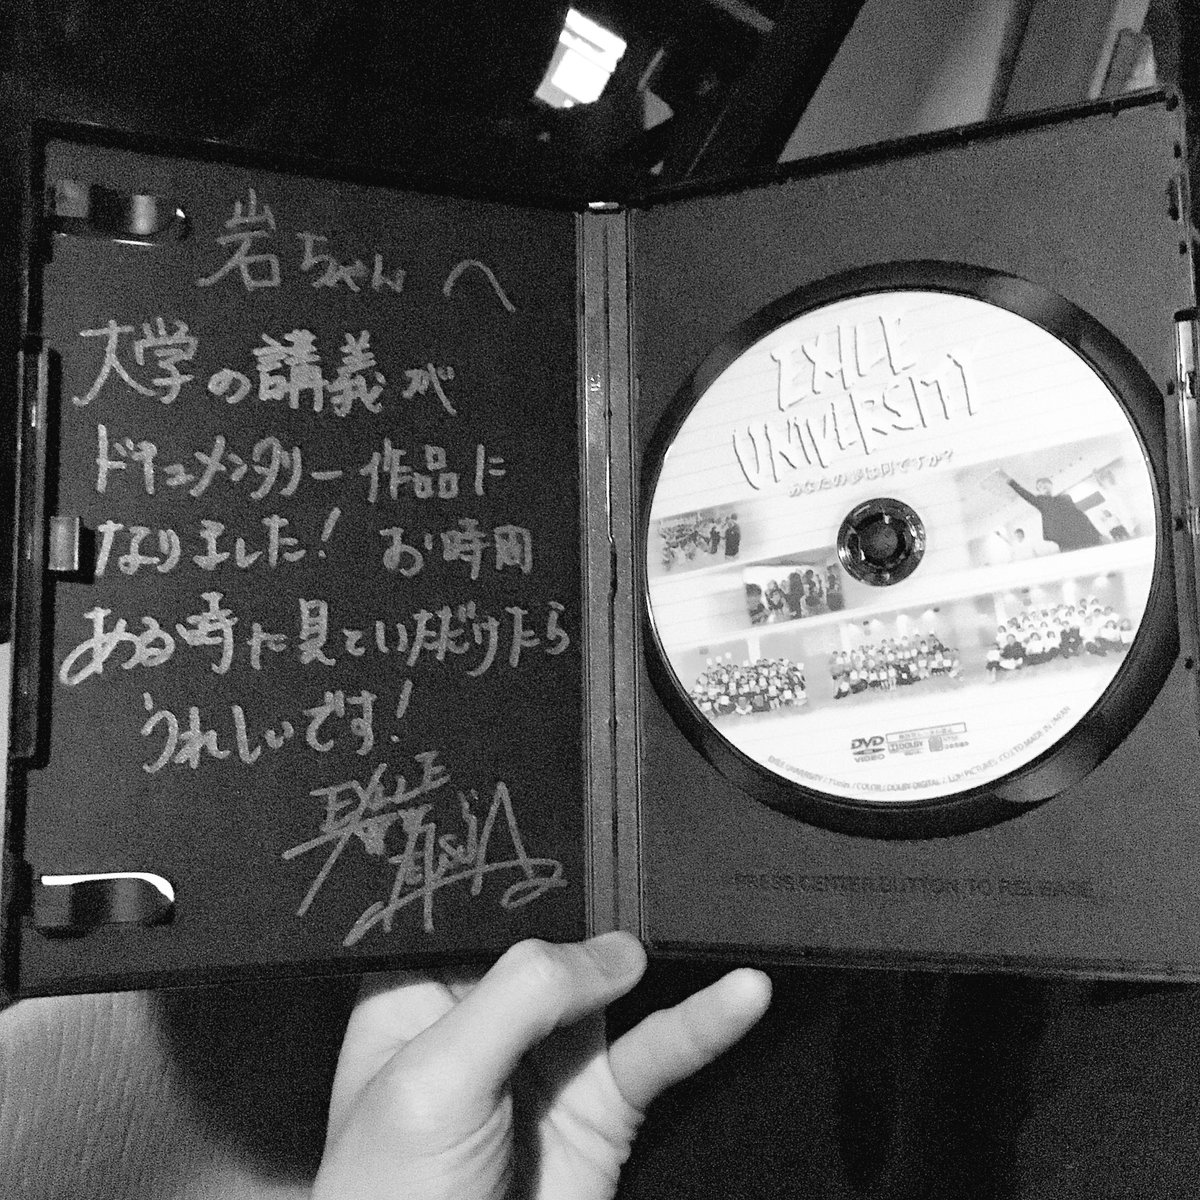 岩ちゃんへ
大学の講義が
ドキュメンタリー作品に
なりました! お時間
ある時に見ていただけたら
うれしいです!
EXILE
TETSUYA
EXILE
UNIVERSITY
あなたの夢は何ですか?
DVD
VIDEO
DOLBY
EXILE UNIVERSITY / COLOR / DOLBY DIGITAL / LDH PICTURES CO.LTD MADE IN JAPAN
PRESS CENTER BUTTON TO RELEASE